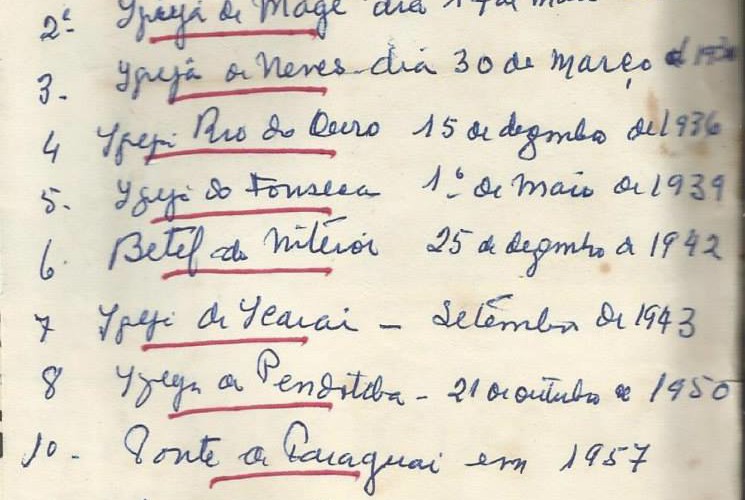 2ª Igreja de Magé dia
3. Igreja de Neves dia 30 de Março
4 Igreja Rio do Ouro 15 de dezembro de 1936
5. Igreja do Fonseca 1º de Maio de 1939
6. Betel de Niterói 25 de dezembro de 1942
7 Igreja de Icarai - Setembro de 1943
8 Igreja de Pendotiba - 21 de outubro de 1950
10. Ponte de Paraguai em 1957